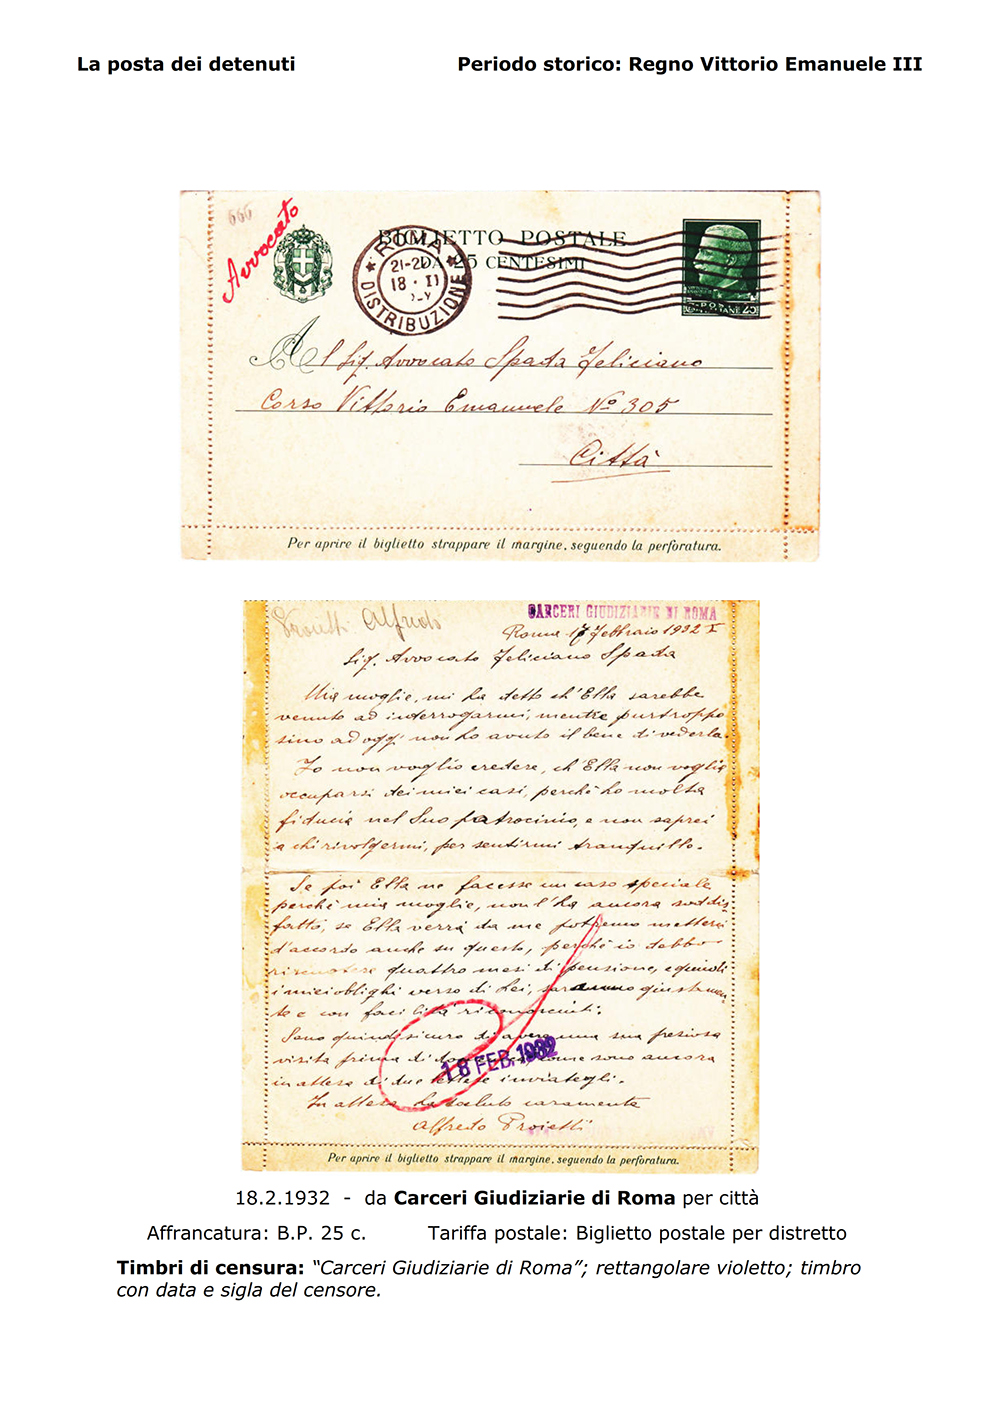 La posta dei detenuti Periodo storico: Regno Vittorio Emanuele III
666
Avvocato
BIGLIETTO POSTALE
DA 25 CENTESIMI
ROMA
18 · II
DISTRIBUZIONE
Al Sig. Avvocato Spada Feliciano
Corso Vittorio Emanuele Nº 305
Città
Per aprire il biglietto strappare il margine, seguendo la perforatura.
Alfredo
CARCERI GIUDIZIARIE DI ROMA
Roma 17 Febbraio 1932 X
Sig. Avvocato Feliciano Spada
Mia moglie, mi ha detto ch'Ella sarebbe
venuto ad interrogarmi, mentre purtroppo
sino ad oggi non ho avuto il bene di vederla.
Io non voglio credere, ch'Ella non voglia
occuparsi dei miei casi, perchè ho molta
fiducia nel Suo patrocinio, e non saprei
a chi rivolgermi, per sentirmi tranquillo.
Se poi Ella ne facesse un caso speciale
perchè mia moglie, non l'ha ancora soddis
fatto, se Ella verrà da me potremo metterci
d'accordo anche su questo, perchè io debbo
riscuotere quattro mesi di pensione, e quindi
i miei obblighi verso di Lei, saranno giustamen
te e con facilità riconosciuti.
Sono quindi sicuro di avere una sua preziosa
visita prima di come sono ancora
in attesa di due lettere inviategli.
In attesa La saluto caramente
Alfredo Proietti
18 FEB. 1932
Per aprire il biglietto strappare il margine, seguendo la perforatura.
18.2.1932 - da Carceri Giudiziarie di Roma per città
Affrancatura: B.P. 25 c. Tariffa postale: Biglietto postale per distretto
Timbri di censura: “Carceri Giudiziarie di Roma”; rettangolare violetto; timbro
con data e sigla del censore.